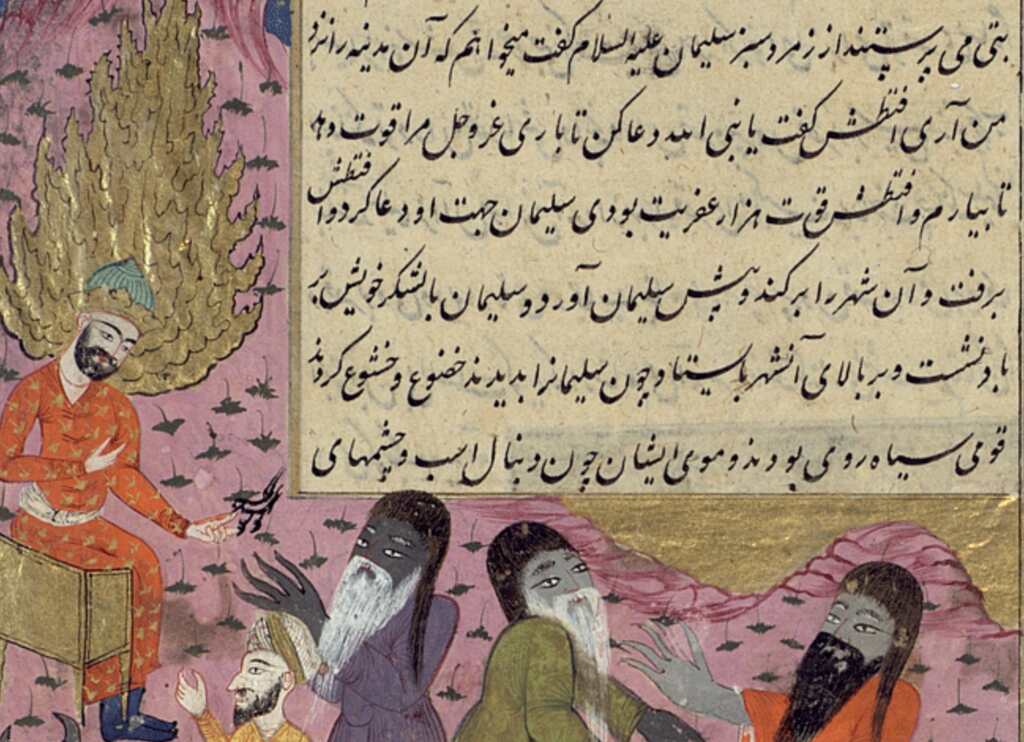 بتی می پرستند از زمرد سبز سلیمان علیه السلام گفت میخواهم که آن مدنیه را نزد
من آری افتطش گفت یا نبی الله دعا کن تا باری عز و جل مرا قوت دهد
تا بیارم و افتطش قوت هزار عفریت بودی سلیمان جهت او دعا کرد و افتطش
برفت و آن شهر را بر کند و پیش سلیمان آورد و سلیمان با لشکر خویش بر
باد نشست و بر بالای آنشهر باستاد و چون سلیمانرا بدیدند خضوع و خشوع کردند
قومی سیاه روی بودند و موی ایشان چون دنبال اسب و چشمهای